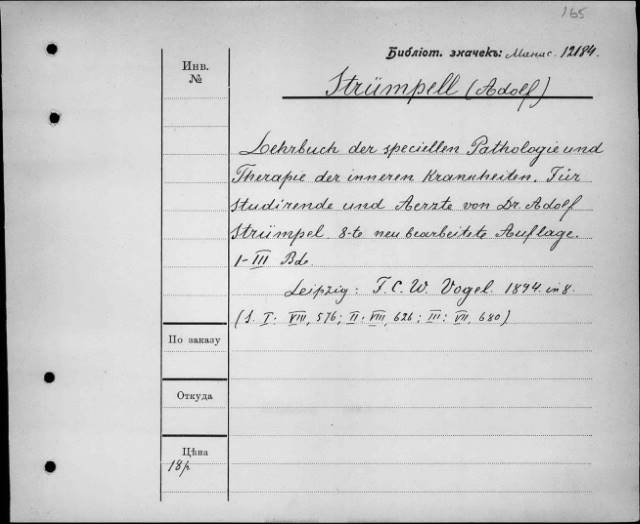 165
Библіот. значекъ: Манас. 12184.
Инв.
№
Strümpell (Adolf)
Lehrbuch der speciellen Pathologie und
Therapie der inneren Krankheiten. Für
studirende und Aerzte von Dr. Adolf
Strümpel. 8-te neu bearbeitete Auflage.
I-III Bde
Leipzig: F. C. W. Vogel. 1894. in 8.
(S. I: VIII, 576; II: VIII, 626; III: VII, 680)
По заказу
Откуда
Цѣна
18р